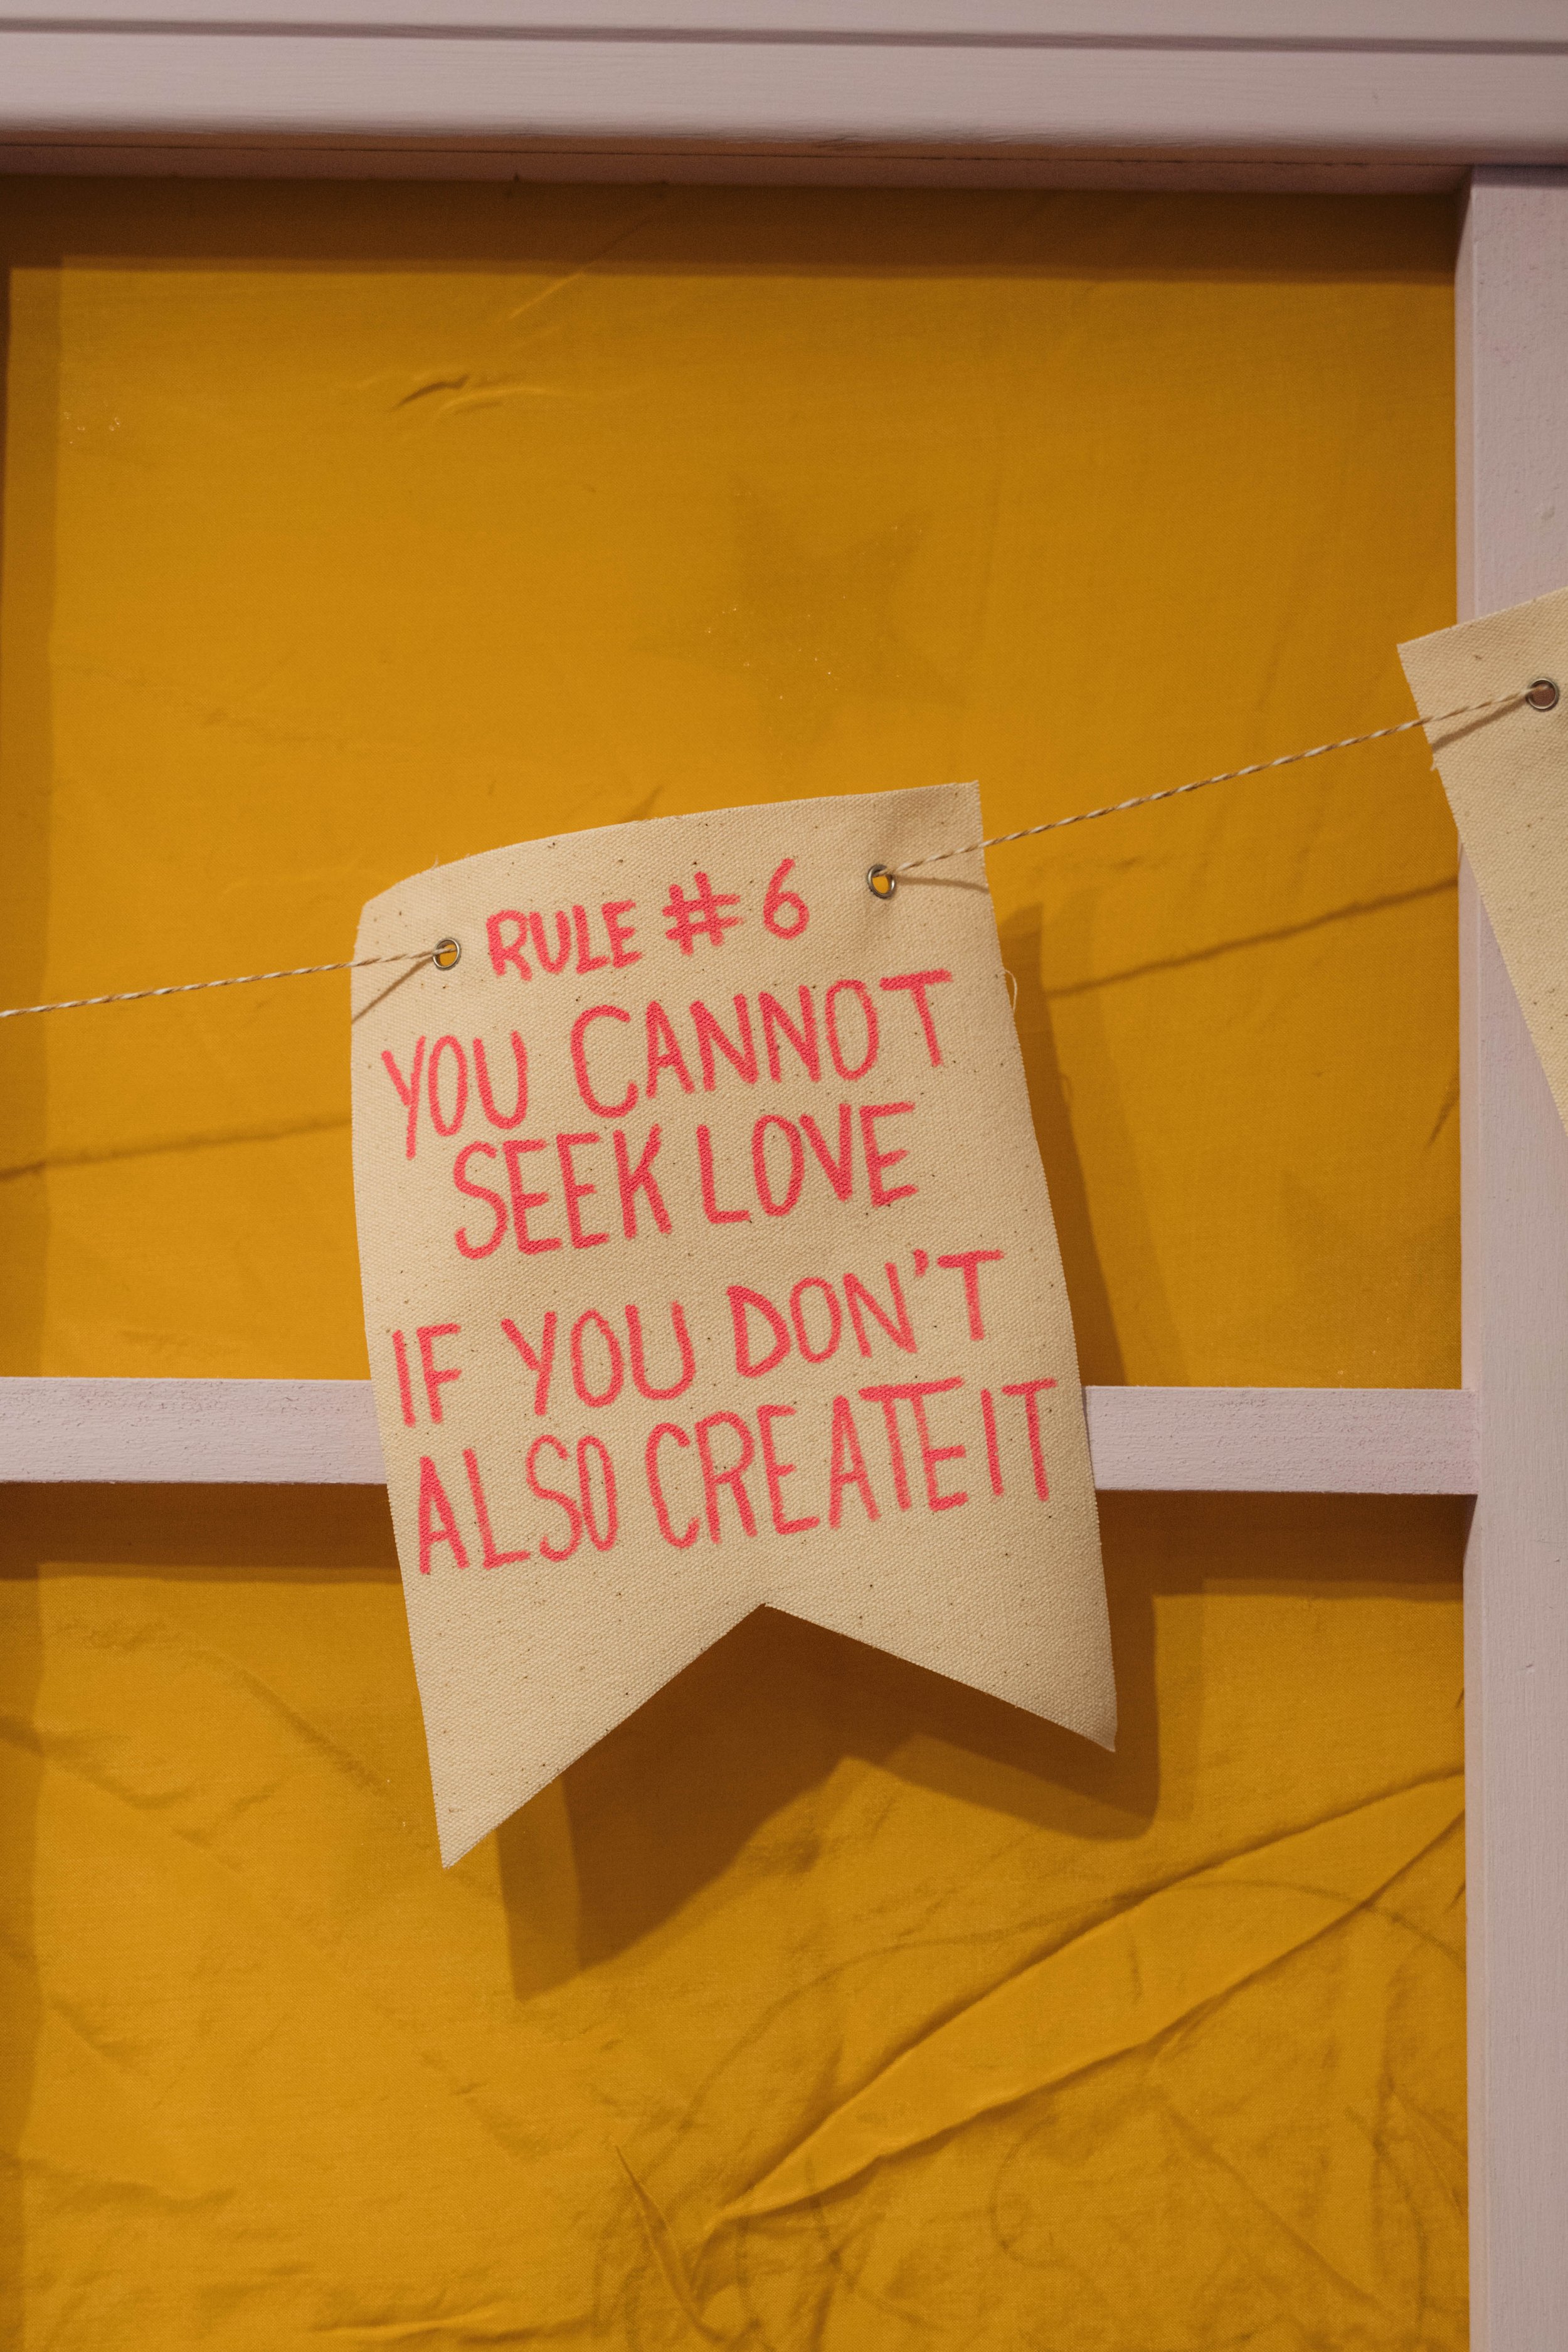 RULE #6
YOU CANNOT
SEEK LOVE
IF YOU DON'T
ALSO CREATE IT